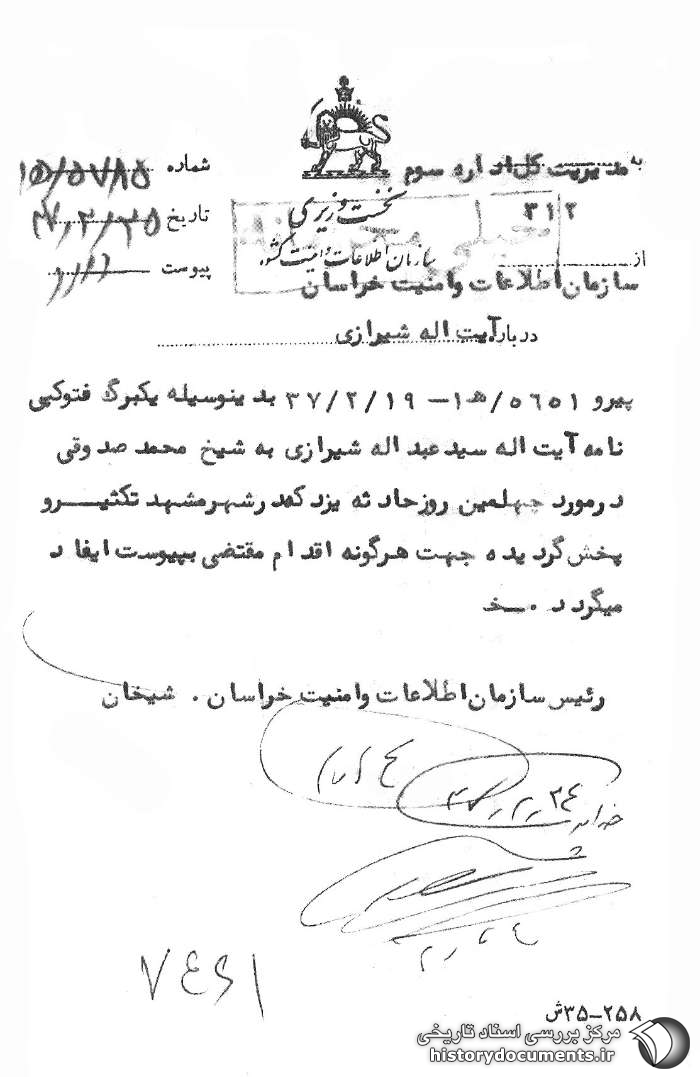 به مدیریت کل اداره سوم
۳۱۲
از
سازمان اطلاعات وامنیت خراسان
درباره آیت اله شیرازی
نخست وزیری
سازمان اطلاعات و امنیت کشور
شماره ۱۵/۵۷۸۵
تاریخ ۳۷/۲/۲۵
پیوست
پیرو ۵۶۵۱/ه۱ – ۳۷/۲/۱۹ بدینوسیله یکبرگ فتوکپی
نامه آیت اله سید عبد اله شیرازی به شیخ محمد صدوقی
درمورد چهلمین روزحادثه یزد که در شهرمشهد تکثیرو
پخش گردیده جهت هرگونه اقدام مقتضی بپیوست ایفاد
میگردد . خ
رئیس سازمان اطلاعات وامنیت خراسان . شیخان
۳۵–۲۵۸ش
مرکز بررسی اسناد تاریخی
historydocuments.ir